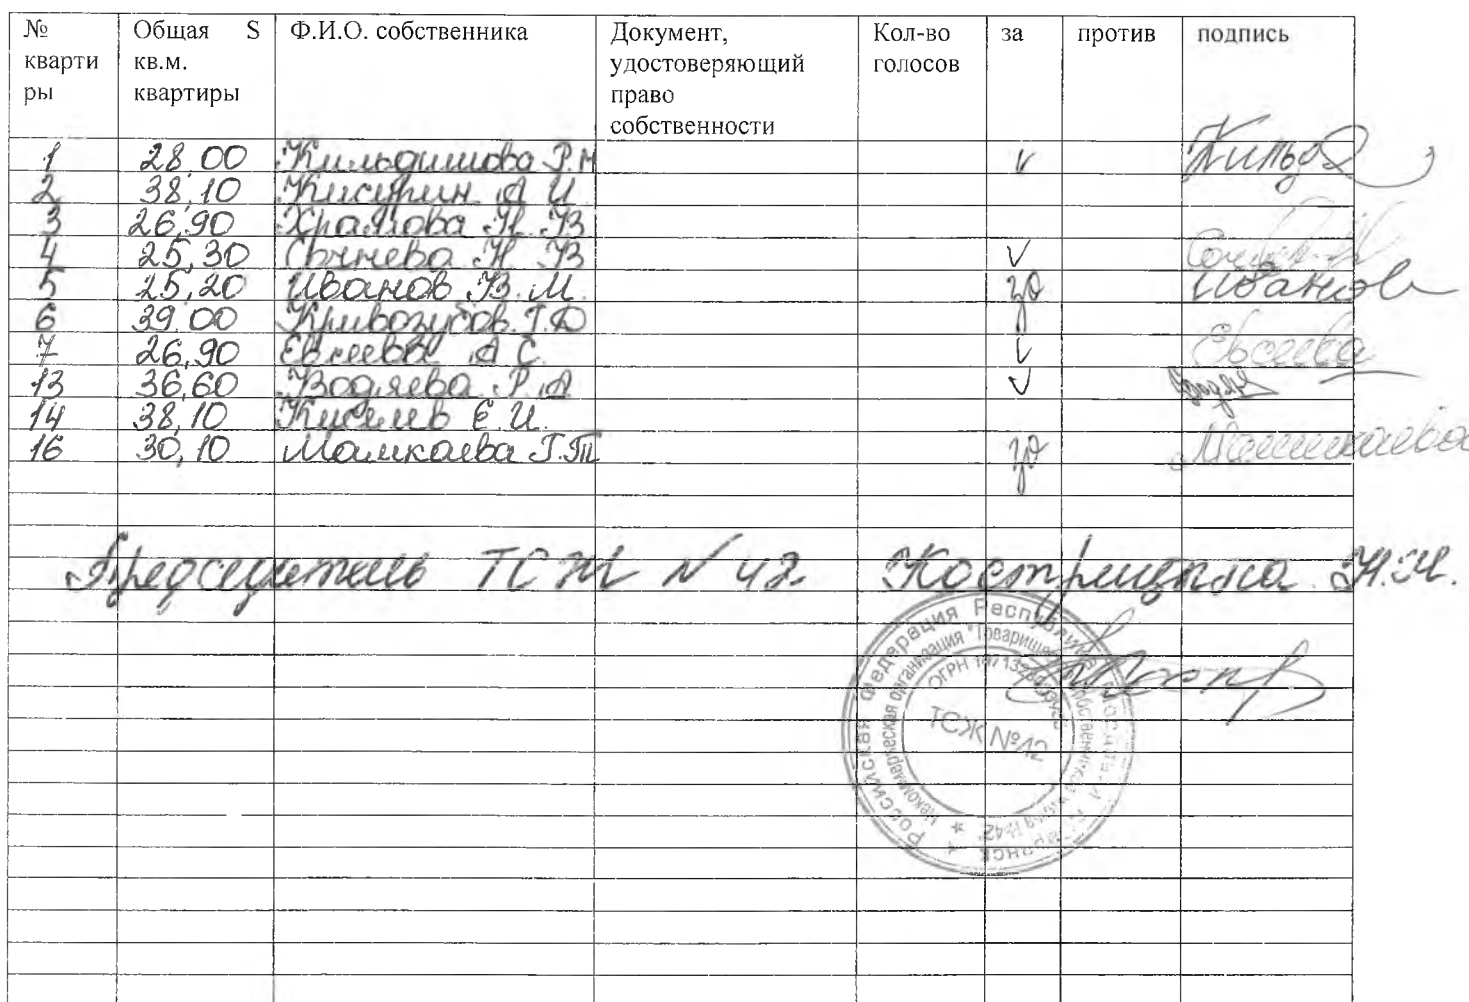 № кварти ры Общая S кв.м. квартиры Ф.И.О. собственника Документ, удостоверяющий право собственности Кол-во голосов за против подпись
1 28,00 Кильдишова Р.Н v Кильд
2 38,10 Кисурин А И
3 26,90 Храмова Н. В
4 25,30 Сычнева Н В v
5 25,20 Иванов В. М. за Иванов
6 39,00 Кривозубов Г.Ф
7 26,90 Евсеева А С. v Евсеева
13 36,60 Водяева Р. А v
14 38,10 Киселев Е. И.
16 30,10 Мамкаева Г.Т за Мамкаева
Председатель ТСЖ N 42 Кострицкая Н.Н.
Российская Федерация Республика
Некоммерческая организация "Товарищество собственников жилья №42"
ТСЖ №42